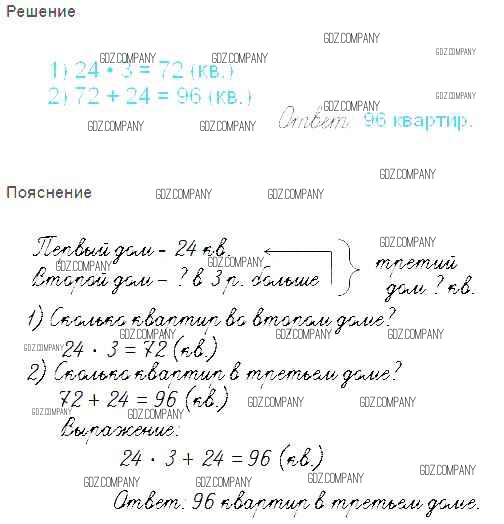 Решение
GDZ.COMPANY
GDZ.COMPANY GDZ.COMPANY GDZ.COMPANY
1) 24 • 3 = 72 (кв.)
2) 72 + 24 = 96 (кв.) GDZ.COMPANY
GDZ.COMPANY
GDZ.COMPANY GDZ.COMPANY Ответ: 96 квартир.
GDZ.COMPANY
Пояснение GDZ.COMPANY GDZ.COMPANY
Первый дом – 24 кв. GDZ.COMPANY
GDZ.COMPANY GDZ.COMPANY третий
Второй дом – ? в 3 р. больше дом ? кв.
1) Сколько квартир во втором доме?
GDZ.COMPANY GDZ.COMPANY GDZ.COMPANY
GDZ.COMPANY 24 · 3 = 72 (кв.)
2) Сколько квартир в третьем доме?
72 + 24 = 96 (кв.) GDZ.COMPANY GDZ.COMPANY
GDZ.COMPANY GDZ.COMPANY
Выражение:
24 · 3 + 24 = 96 (кв.)
GDZ.COMPANY GDZ.COMPANY GDZ.COMPANY GDZ.COMPANY
Ответ: 96 квартир в третьем доме.
GDZ.COMPANY GDZ.COMPANY GDZ.COMPANY